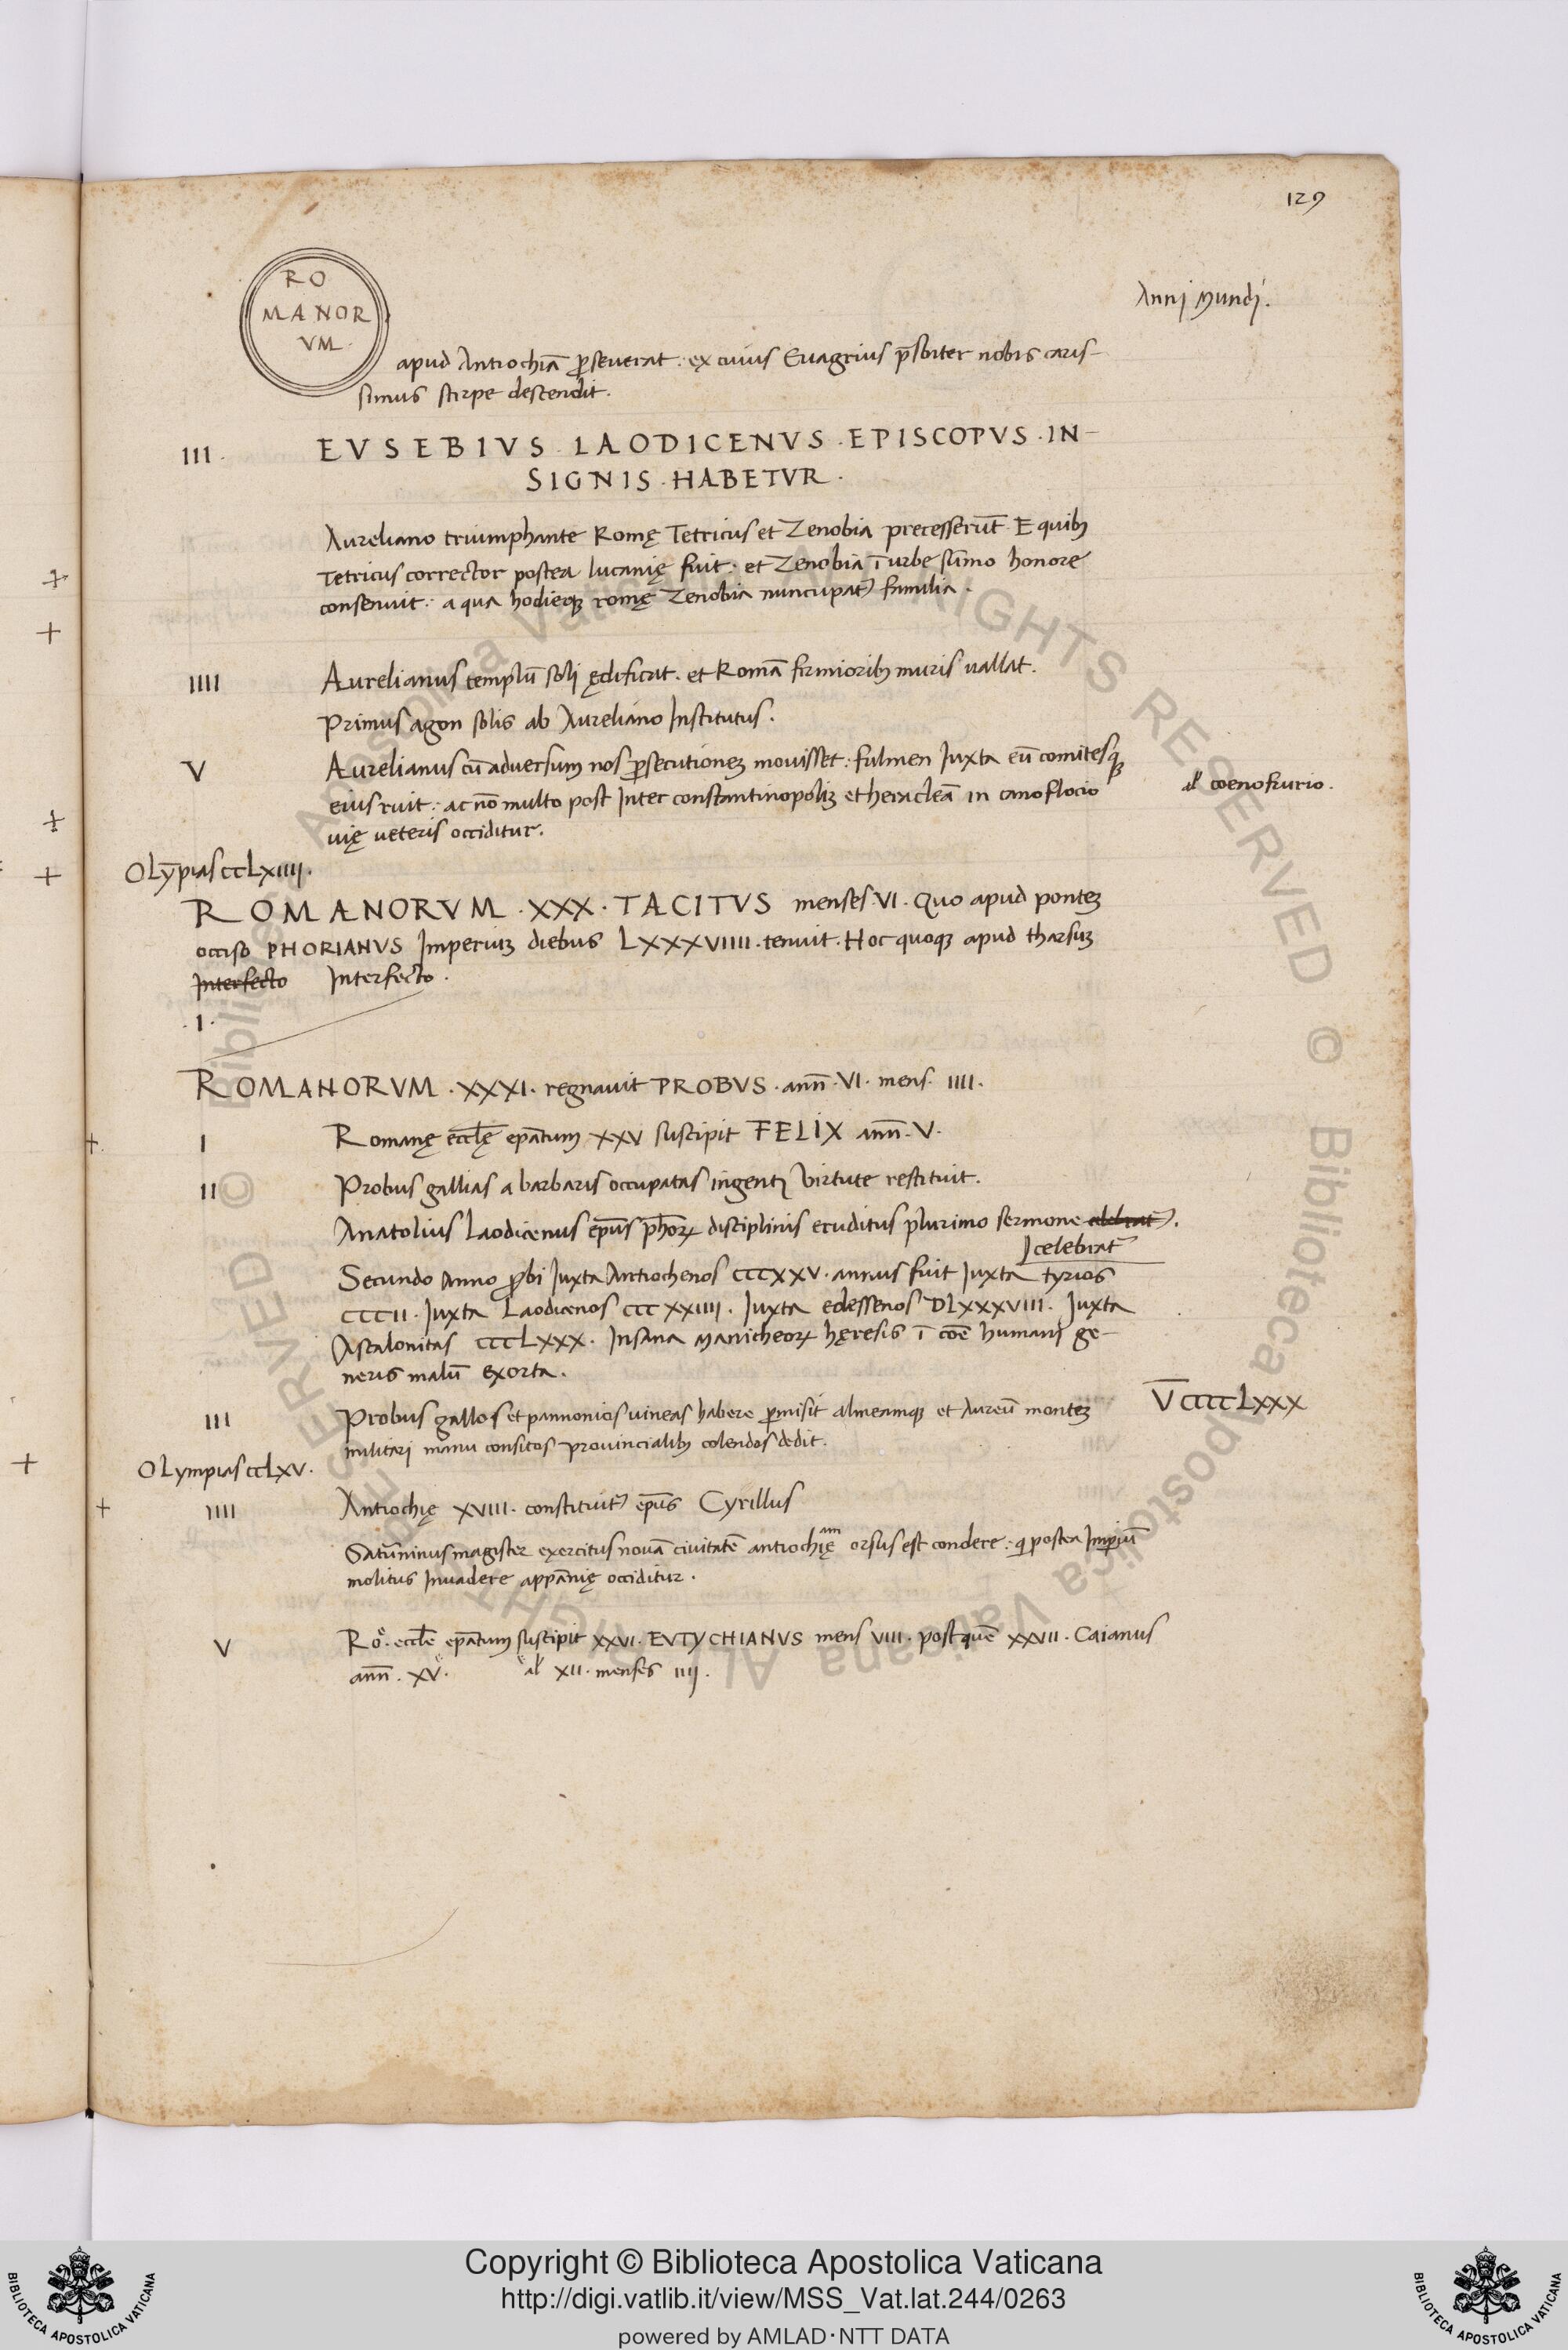 129
RO
MANOR
VM.
Anni Mundi.
apud Antiochiā ꝑseuerat: ex cuius Euagrius p̄sbiter nobis caris-
simus stirpe descendit.
III. EVSEBIVS. LAODICENVS. EPISCOPVS. IN-
SIGNIS. HABETVR.
Aureliano triumphante Romę Tetricus et Zenobia precesserūt. E quibꝫ
Tetricus corrector postea lucanię fuit: et Zenobia ī urbe sūmo honore
consenuit: a qua hodieqꝫ romę Zenobia nuncupat᷒ familia.
IIII Aurelianus templū soli ędificat. et Romā firmioribꝫ muris uallat.
Primus agon solis ab Aureliano Institutus.
V Aurelianus cū aduersum nos ꝑsecutioneꝫ mouisset: fulmen Iuxta eū comitesqꝫ
eius ruit: ac nō multo post Inter constantinopoliꝫ et heracleā in canoflocio
al' coenofrurio.
uię ueteris occiditur.
OLȳpias ccLxiiii.
ROMANORVM. XXX. TACITVS menses VI. Quo apud ponteꝫ
occiso PHORIANVS Imperiuꝫ diebus LXXXVIIII. tenuit. Hoc quoqꝫ apud tharsuꝫ
Interfecto Interfecto.
.I.
ROMANORVM. XXXI. regnauit PROBVS. ann̄. VI. mens. IIII.
I Romanę eccl̄ę ep̄atum XXV suscipit FELIX ann̄. V.
II Probus gallias a barbaris occupatas ingenti Virtute restituit.
Anatolius Laodicenus ep̄us ph̄oꝝ disciplinis eruditus plurimo sermone celebrat᷒.
celebrat᷒
Secundo Anno ꝓbi Iuxta Antiochenos cccxxv. annus fuit Iuxta tyrios
cccII. Iuxta Laodicenos cccxxiiii. Iuxta edessenos DLXXXVIII. Iuxta
Ascalonitas cccLxxx. Insana Manicheoꝝ hęresis ī coē humani ge-
neris malū exorta.
V̄ccccLxxx
III Probus gallos et pannonios uineas habere ꝑmisit almeamqꝫ et Aureū monteꝫ
militari manu consitos prouincialibꝫ colendos dedit.
OLympias ccLxv.
IIII Antiochię XVIII. constituit᷒ ep̄us Cyrillus
am
Satūrninus magister exercitus nouā ciuitatē antiochię orsus est condere: q postea Imꝑiū
molitus Inuadere appāmię occiditur.
V Ro. eccl̄e ep̄atum suscipit XXVI. EVTYCHIANVS mens VIII. post quē XXVII. Caianus
ann̄. XV. al' XII. menses IIII.
Copyright © Biblioteca Apostolica Vaticana
http://digi.vatlib.it/view/MSS_Vat.lat.244/0263
powered by AMLAD·NTT DATA
BIBLIOTECA APOSTOLICA VATICANA
BIBLIOTECA APOSTOLICA VATICANA